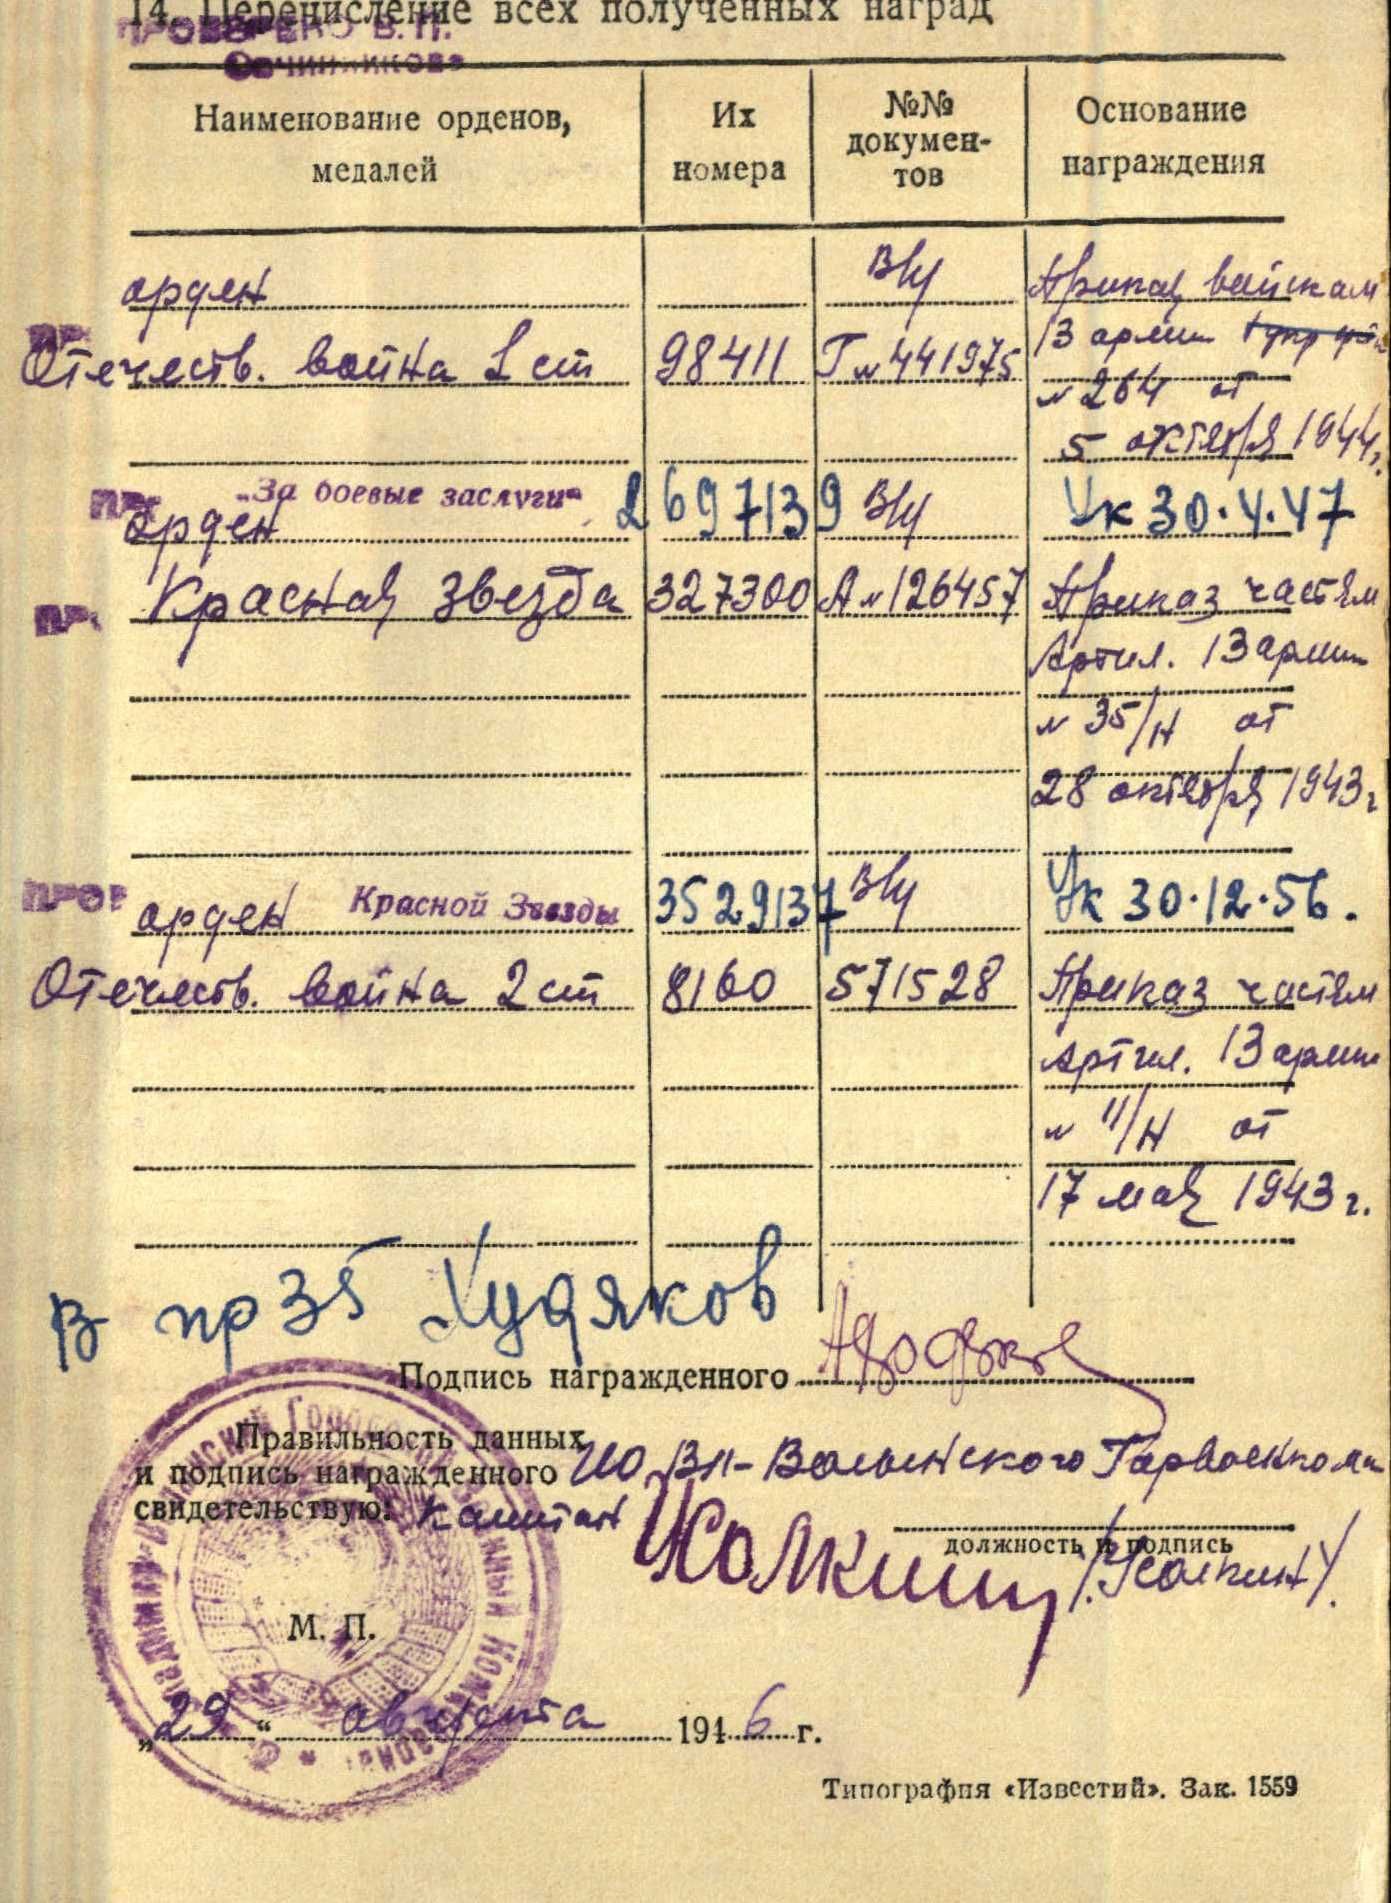 14. Перечисление всех полученных наград
ПРОВЕРЕНО В. П.
Овчинникова
Наименование орденов, медалей
Их номера
№№ документов
Основание награждения
орден В/у Приказ войскам
Отечеств. война 1 ст 98411 Г № 441975 13 армии
№ 264 от
5 октября 1944г.
„За боевые заслуги“ 2697139 Ук 30.4.47
орден В/у
Красная звезда 327300 А № 126457 Приказ частям
Артил. 13 армии
№ 35/н от
28 октября 1943г
ПРОВ
орден Красной Звезды 3529137 В/у Ук 30.12.56.
Отечеств. война 2 ст 8160 571528 Приказ частям
Артил. 13 армии
№ 11/н от
17 мая 1943г.
В пр 35 Худяков
Подпись награжденного
Правильность данных
и подпись награжденного ИО Вл-Волынского Горвоенкома
свидетельствую: Капитан Усолкин
должность и подпись
/Усолкин/.
М. П.
„29“ августа 1946 г.
Типография «Известий». Зак. 1559